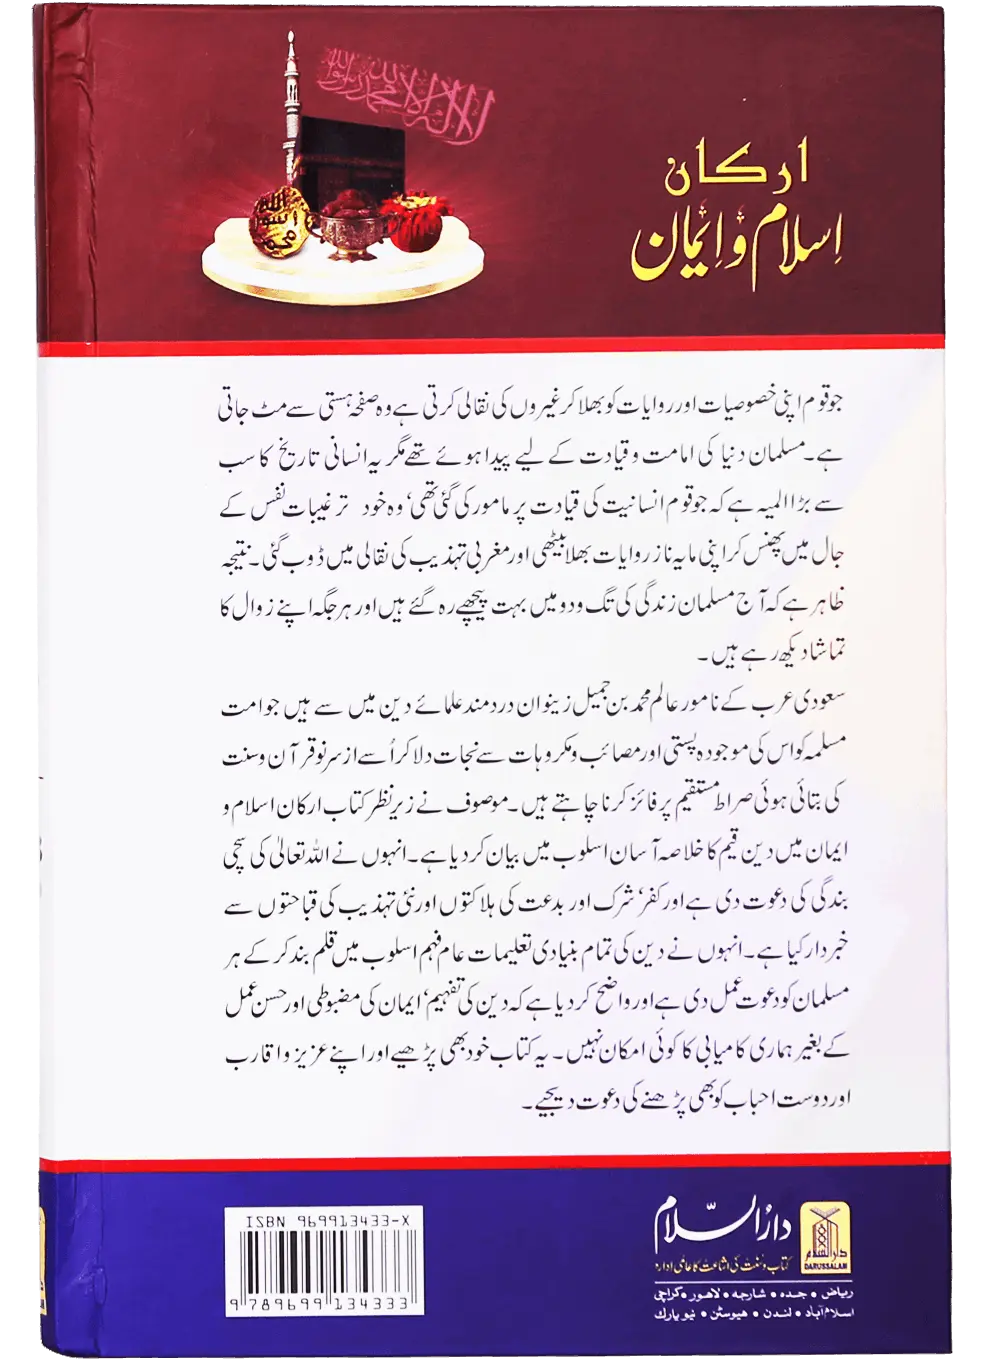 لا اله الا الله محمد رسول الله
الله
رسول
محمد
ارکان
اِسلام و اِیمان
جو قوم اپنی خصوصیات اور روایات کو بھلا کر غیروں کی نقالی کرتی ہے وہ صفحہ ہستی سے مٹ جاتی
ہے۔ مسلمان دنیا کی امامت و قیادت کے لیے پیدا ہوئے تھے مگر یہ انسانی تاریخ کا سب
سے بڑا المیہ ہے کہ جو قوم انسانیت کی قیادت پر مامور کی گئی تھی‘ وہ خود ترغیبات نفس کے
جال میں پھنس کر اپنی مایہ ناز روایات بھلا بیٹھی اور مغربی تہذیب کی نقالی میں ڈوب گئی۔ نتیجہ
ظاہر ہے کہ آج مسلمان زندگی کی تگ و دو میں بہت پیچھے رہ گئے ہیں اور ہر جگہ اپنے زوال کا
تماشا دیکھ رہے ہیں۔
سعودی عرب کے نامور عالم محمد بن جمیل زینو ان دردمند علمائے دین میں سے ہیں جو امت
مسلمہ کو اس کی موجودہ پستی اور مصائب و مکروہات سے نجات دلا کر اُسے از سر نو قرآن و سنت
کی بتائی ہوئی صراط مستقیم پر فائز کرنا چاہتے ہیں۔ موصوف نے زیر نظر کتاب ارکان اسلام و
ایمان میں دین قیم کا خلاصہ آسان اسلوب میں بیان کر دیا ہے۔ انہوں نے اللہ تعالیٰ کی سچی
بندگی کی دعوت دی ہے اور کفر‘ شرک اور بدعت کی ہلاکتوں اور نئی تہذیب کی قباحتوں سے
خبردار کیا ہے۔ انہوں نے دین کی تمام بنیادی تعلیمات عام فہم اسلوب میں قلم بند کر کے ہر
مسلمان کو دعوت عمل دی ہے اور واضح کر دیا ہے کہ دین کی تفہیم‘ ایمان کی مضبوطی اور حسن عمل
کے بغیر ہماری کامیابی کا کوئی امکان نہیں۔ یہ کتاب خود بھی پڑھیے اور اپنے عزیز و اقارب
اور دوست احباب کو بھی پڑھنے کی دعوت دیجیے۔
ISBN 969913433-X
9 789699 134333
دارُالسّلام
کتاب و سنت کی اشاعت کا عالمی ادارہ
دارالسلام
DARUSSALAM
ریاض • جدہ • شارجہ • لاہور • کراچی
اسلام آباد • لندن • ھیوسٹن • نیو یارك